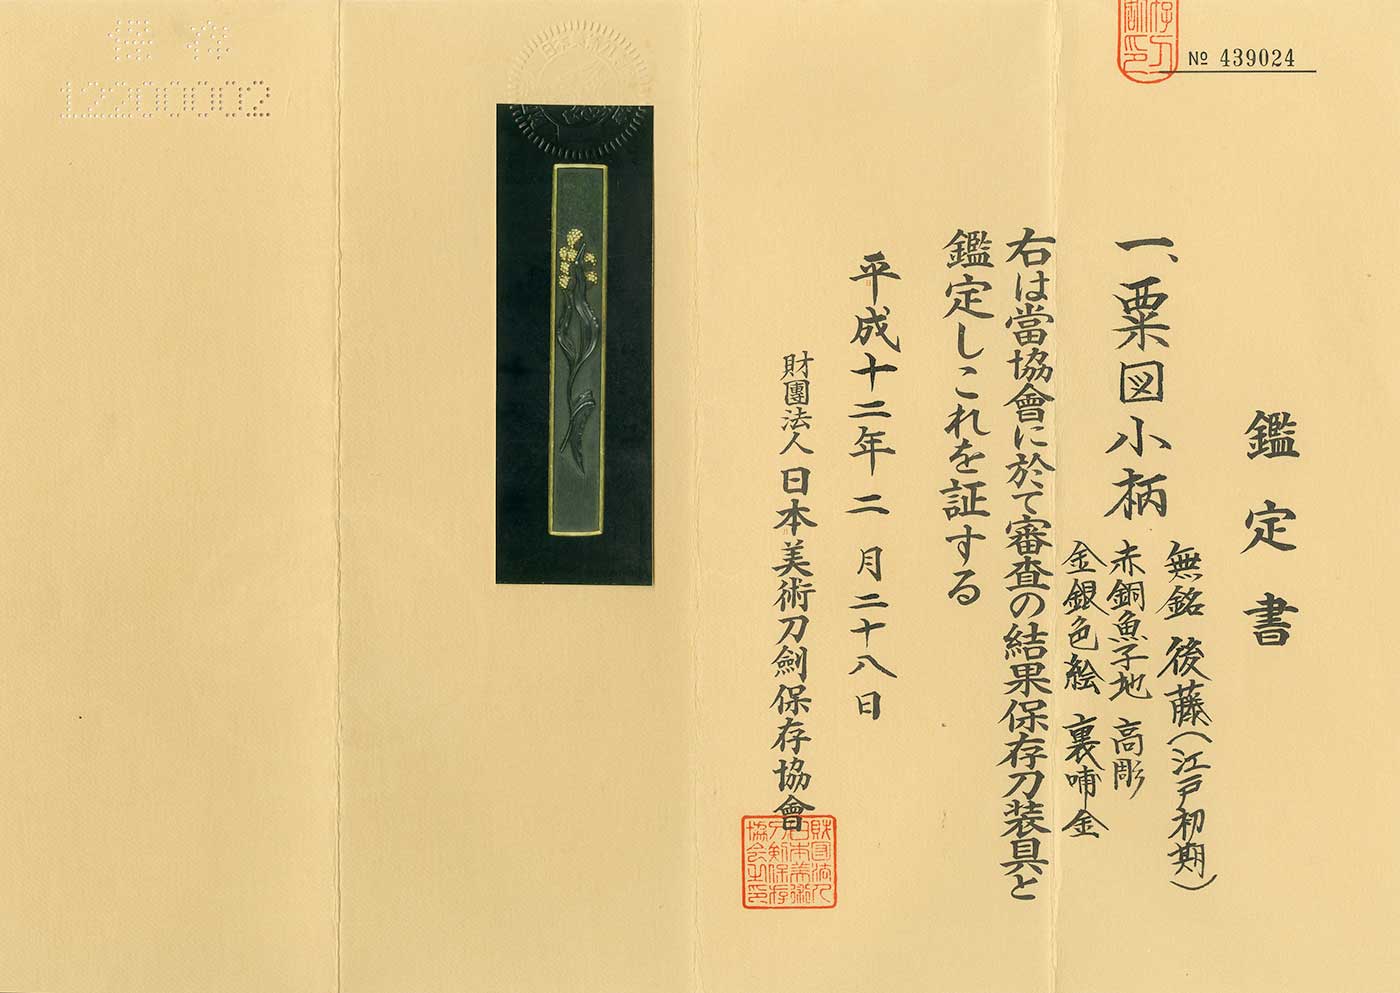 № 439024
鑑定書
一、粟図小柄
無銘 後藤(江戸初期)
赤銅魚子地 高彫
金銀色絵 裏哺金
右は當協會に於て審査の結果保存刀装具と
鑑定しこれを証する
平成十二年二月二十八日
財團法人日本美術刀劍保存協會
保存
12200002